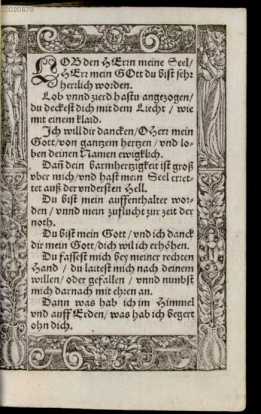 LOB den HErrn meine Seel/
HErr mein GOtt du bist sehr
herlich worden.
Lob vnnd zierd hastu angezogen/
du deckest dich mit dem Liecht / wie
mit einem klaid.
Ich will dir dancken/ O Herr mein
Gott/ von gantzem hertzen / vnd lo-
ben deinen Namen ewigklich.
Dañ dein barmhertzigkeit ist groß
vber mich/ vnd hast mein Seel erret-
tet auß der vndersten Hell.
Du bist mein auffenthalter wor-
den / vnnd mein zuflucht zur zeit der
noth.
Du bist mein Gott / vnd ich danck
dir mein Gott/ dich wil ich erhöhen.
Du fassest mich bey meiner rechten
Hand / du laitest mich nach deinem
willen/ oder gefallen / vnnd nimbst
mich darnach mit ehren an.
Dann was hab ich im Himmel
vnd auff Erden/ was hab ich begert
ohn dich.